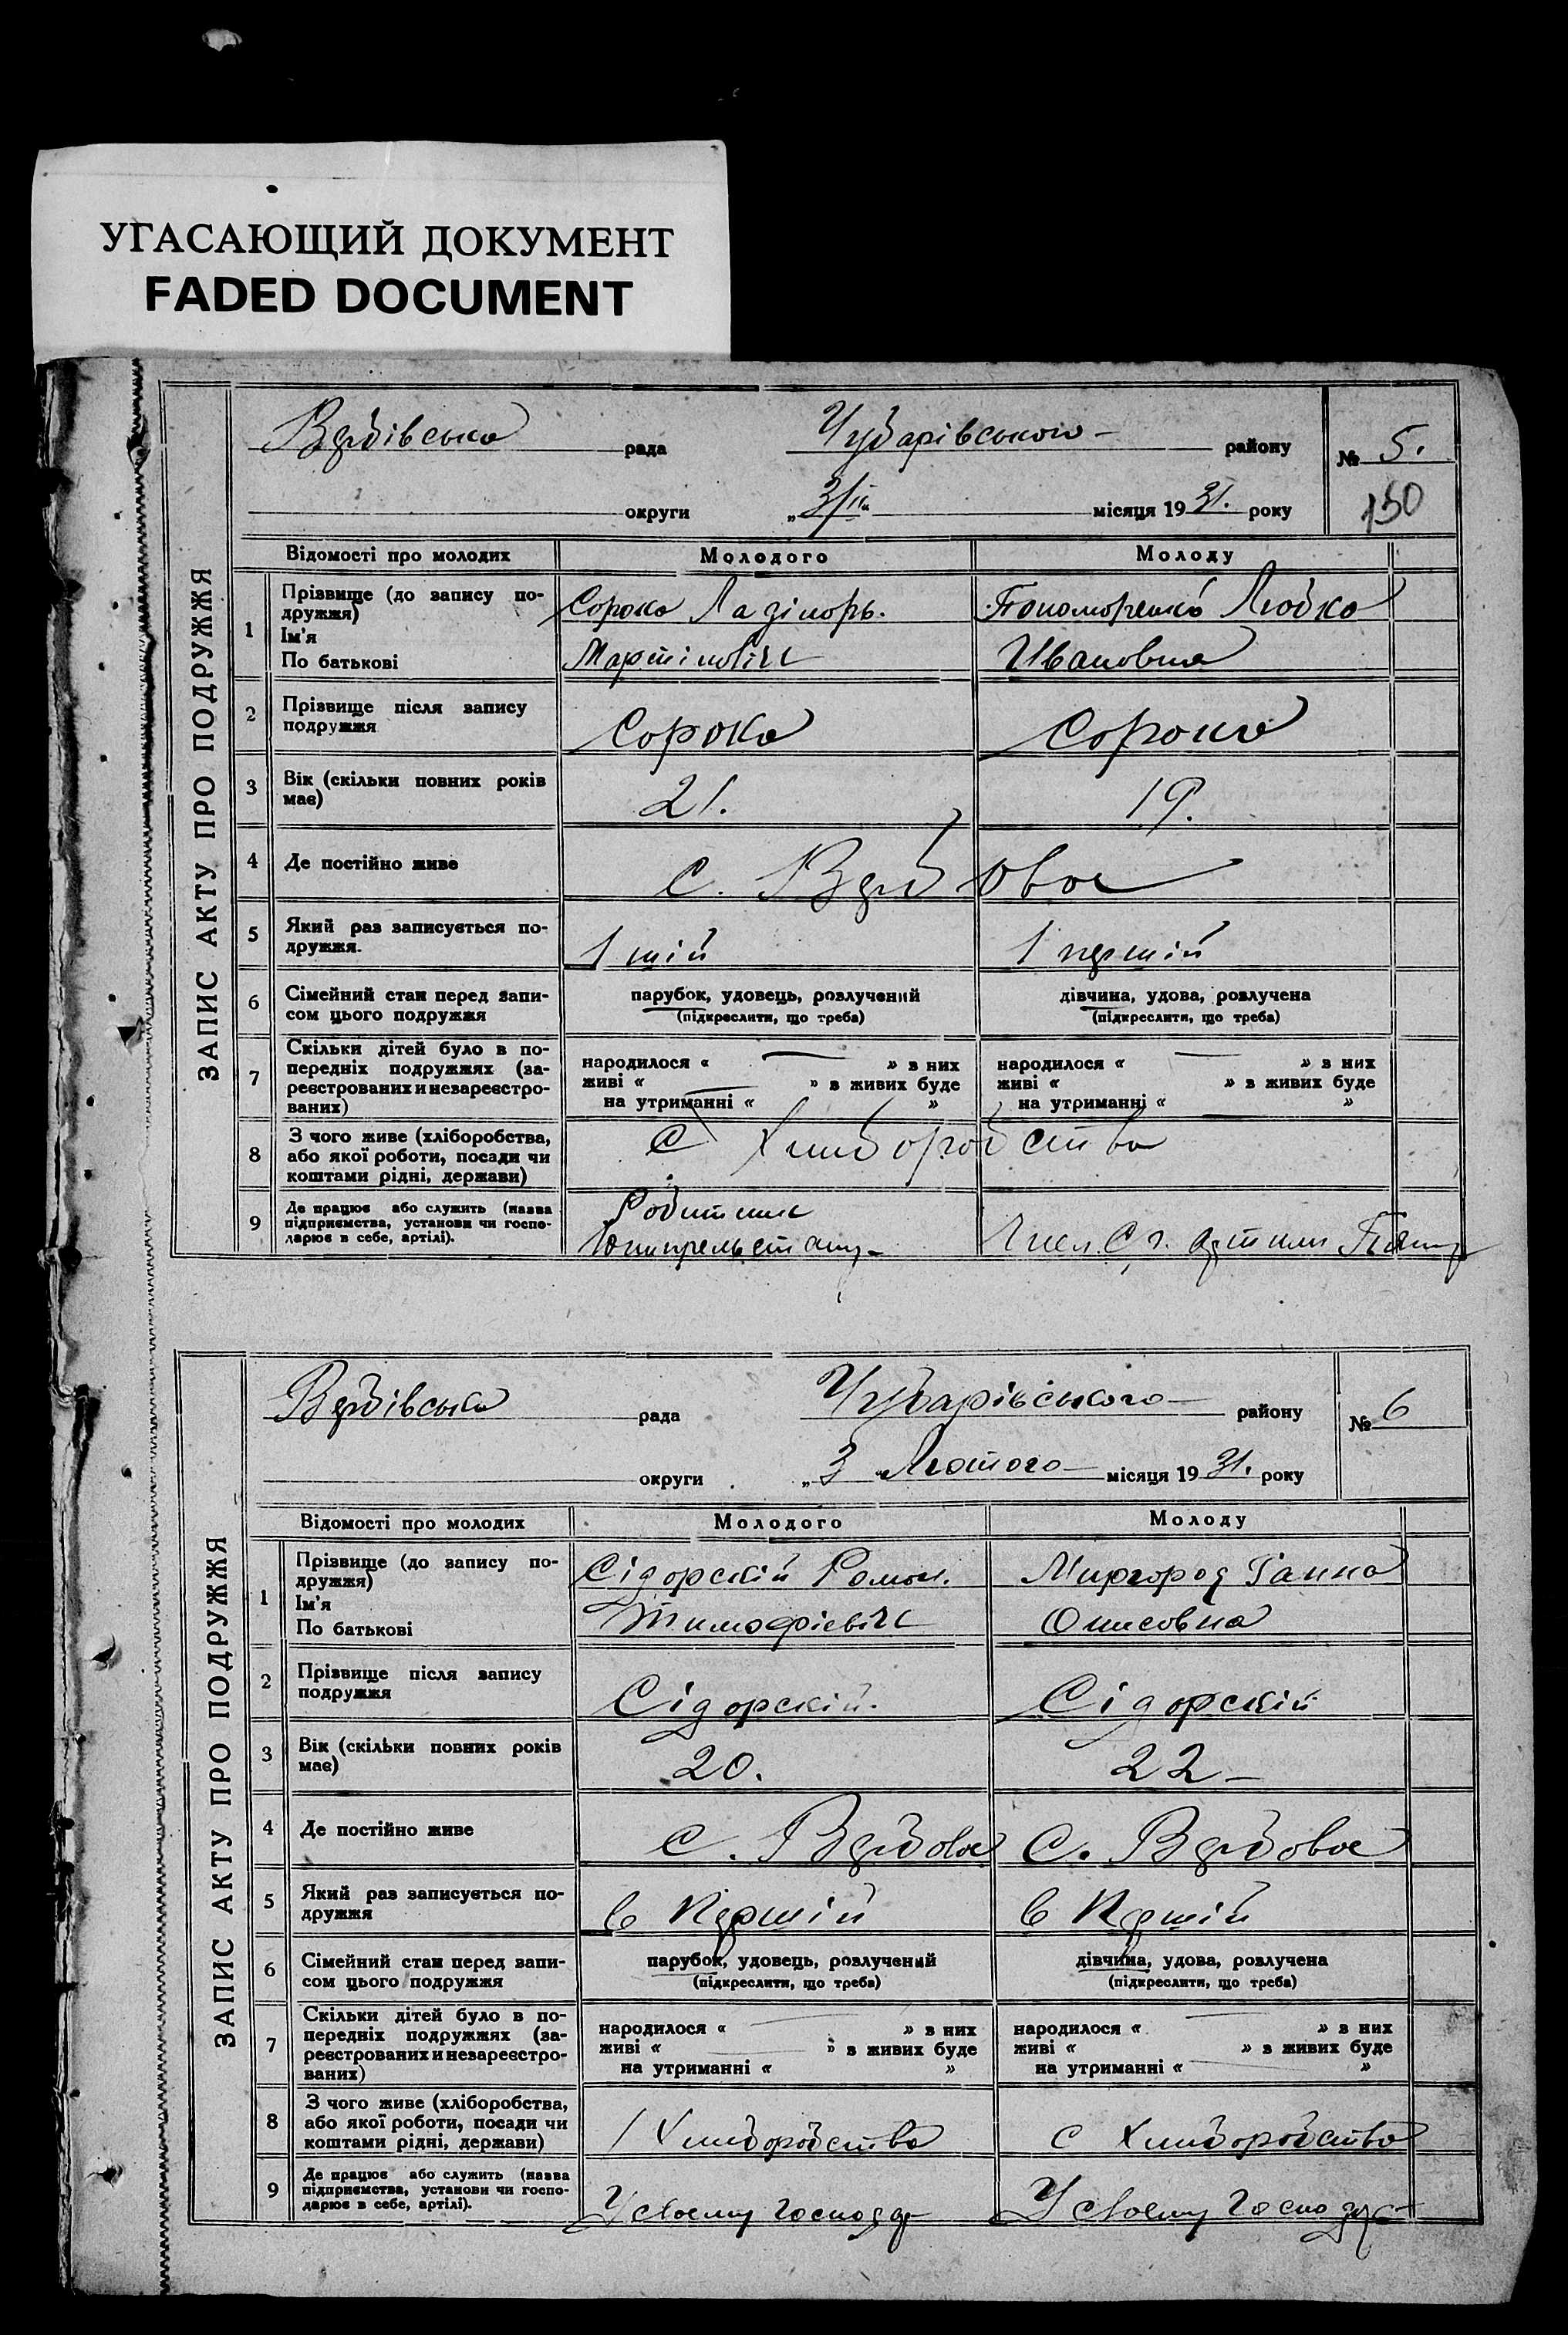 УГАСАЮЩИЙ ДОКУМЕНТ
FADED DOCUMENT
ЗАПИС АКТУ ПРО ПОДРУЖЖЯ
Вербівська рада Чубарівського району № 5.
округи „3/II“ місяця 1931. року 150
Відомості про молодих Молодого Молоду
1 Прізвище (до запису по-
дружжя) Сорока Лазінорь. Пономоренко Любка
Ім'я
По батькові Мартіновіч Ивановна
2 Прізвище після запису
подружжя Сорока Сорока
3 Вік (скільки повних років
має) 21. 19.
4 Де постійно живе с. Вербовое
5 Який раз записується по-
дружжя. 1 ший 1 перший
6 Сімейний стан перед запи-
сом цього подружжя
парубок, удовець, розлучений дівчина, удова, розлучена
(підкреслити, що треба) (підкреслити, що треба)
7 Скільки дітей було в по-
передніх подружжях (за-
реєстрованих и незареєстро-
ваних)
народилося « » з них народилося « » з них
живі « » з живих буде живі « » з живих буде
на утриманні « » на утриманні « »
8 З чого живе (хліборобства,
або якої роботи, посади чи
коштами рідні, держави) С Хлиборобства
9 Де працює або служить (назва
підприємства, установи чи госпо-
дарює в себе, артілі).
Робитник
Член С г. артили
ЗАПИС АКТУ ПРО ПОДРУЖЖЯ
Вербівська рада Чубарівського району № 6
округи „3“ Лютого місяця 1931. року
Відомості про молодих Молодого Молоду
1 Прізвище (до запису по-
дружжя) Сідорскій Роман. Миргород Ганна
Ім'я
По батькові Тимофієвіч Онисовна
2 Прізвище після запису
подружжя Сідорскій. Сідорскій
3 Вік (скільки повних років
має) 20. 22
4 Де постійно живе с. Вербовое С. Вербовое
5 Який раз записується по-
дружжя в Перший в Перший
6 Сімейний стан перед запи-
сом цього подружжя
парубок, удовець, розлучений дівчина, удова, розлучена
(підкреслити, що треба) (підкреслити, що треба)
7 Скільки дітей було в по-
передніх подружжях (за-
реєстрованих и незареєстро-
ваних)
народилося « » з них народилося « » з них
живі « » з живих буде живі « » з живих буде
на утриманні « » на утриманні « »
8 З чого живе (хліборобства,
або якої роботи, посади чи
коштами рідні, держави) Хлиборобства с Хлиборобства
9 Де працює або служить (назва
підприємства, установи чи госпо-
дарює в себе, артілі).
У своему господар У своему Господар